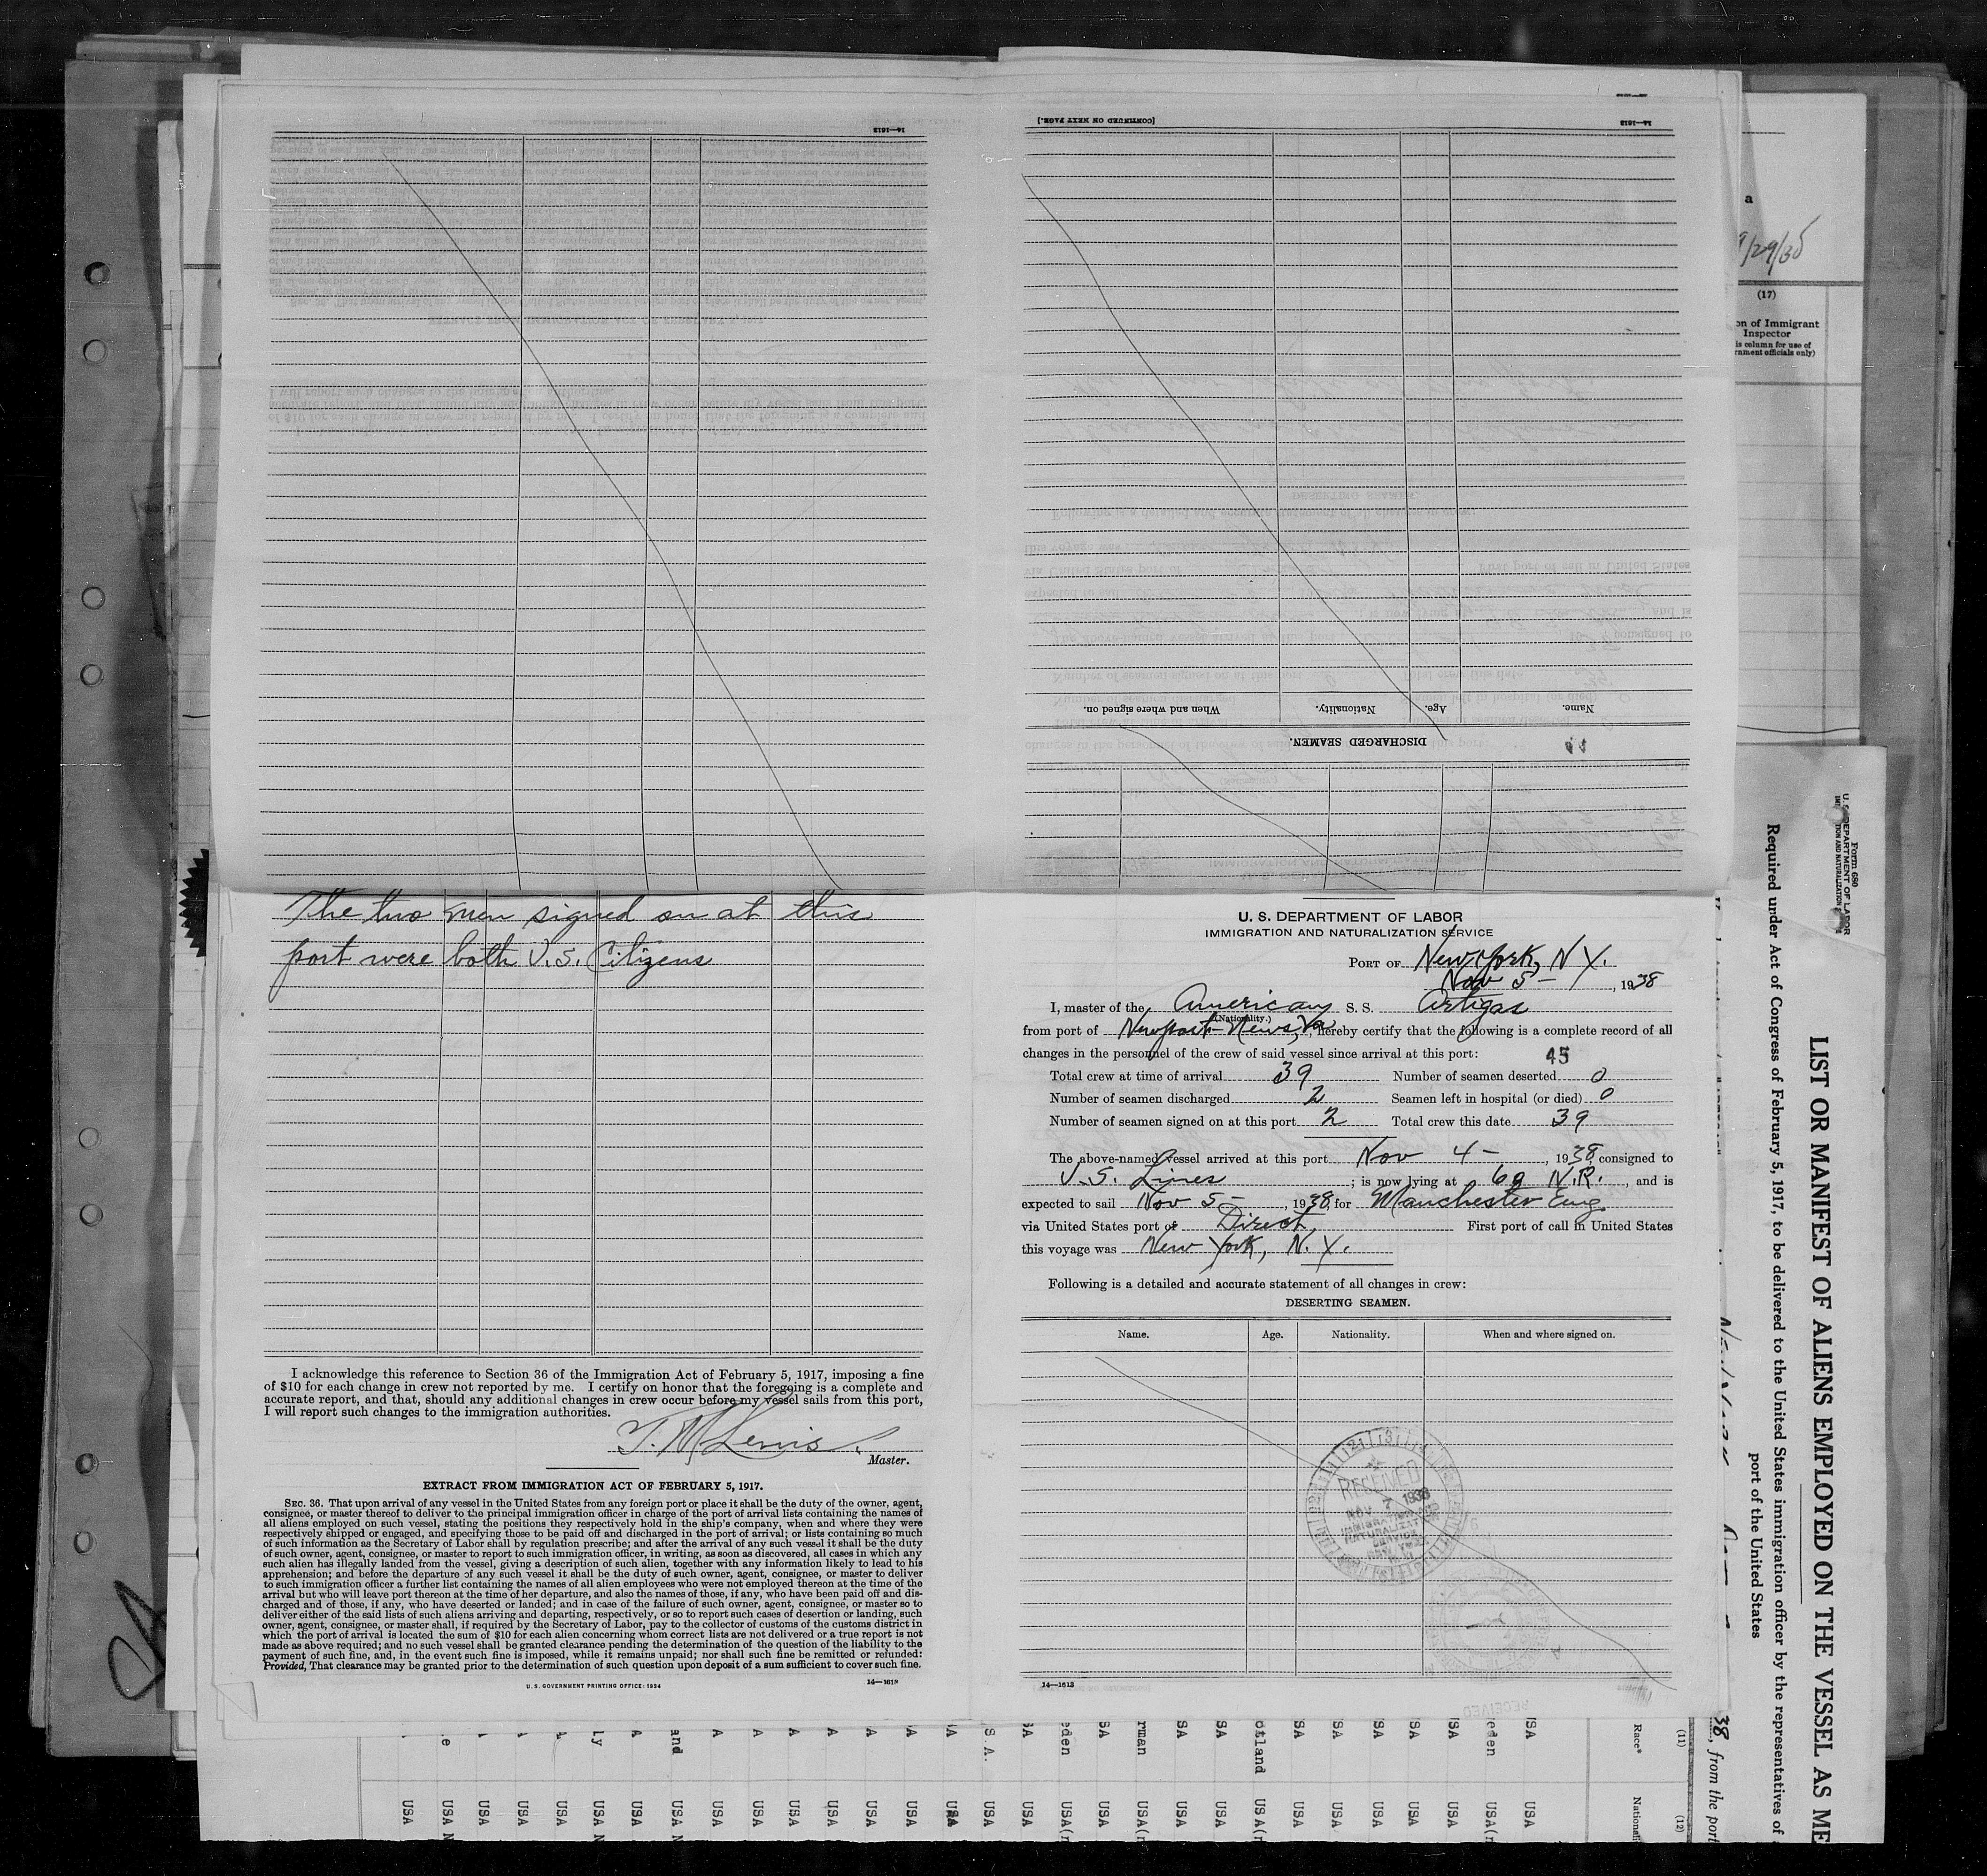 14—1613
[CONTINUED ON NEXT PAGE.]
14—1613
When and where signed on.
Nationality.
Age.
Name.
DISCHARGED SEAMEN.
The two men signed on at this
port were both U.S. Citizens
I acknowledge this reference to Section 36 of the Immigration Act of February 5, 1917, imposing a fine
of $10 for each change in crew not reported by me. I certify on honor that the foregoing is a complete and
accurate report, and that, should any additional changes in crew occur before my vessel sails from this port,
I will report such changes to the immigration authorities.
T. M. Lewis.
Master.
EXTRACT FROM IMMIGRATION ACT OF FEBRUARY 5, 1917.
SEC. 36. That upon arrival of any vessel in the United States from any foreign port or place it shall be the duty of the owner, agent,
consignee, or master thereof to deliver to the principal immigration officer in charge of the port of arrival lists containing the names of
all aliens employed on such vessel, stating the positions they respectively hold in the ship's company, when and where they were
respectively shipped or engaged, and specifying those to be paid off and discharged in the port of arrival; or lists containing so much
of such information as the Secretary of Labor shall by regulation prescribe; and after the arrival of any such vessel it shall be the duty
of such owner, agent, consignee, or master to report to such immigration officer, in writing, as soon as discovered, all cases in which any
such alien has illegally landed from the vessel, giving a description of such alien, together with any information likely to lead to his
apprehension; and before the departure of any such vessel it shall be the duty of such owner, agent, consignee, or master to deliver
to such immigration officer a further list containing the names of all alien employees who were not employed thereon at the time of the
arrival but who will leave port thereon at the time of her departure, and also the names of those, if any, who have been paid off and dis-
charged and of those, if any, who have deserted or landed; and in case of the failure of such owner, agent, consignee, or master so to
deliver either of the said lists of such aliens arriving and departing, respectively, or so to report such cases of desertion or landing, such
owner, agent, consignee, or master shall, if required by the Secretary of Labor, pay to the collector of customs of the customs district in
which the port of arrival is located the sum of $10 for each alien concerning whom correct lists are not delivered or a true report is not
made as above required; and no such vessel shall be granted clearance pending the determination of the question of the liability to the
payment of such fine, and, in the event such fine is imposed, while it remains unpaid; nor shall such fine be remitted or refunded:
Provided, That clearance may be granted prior to the determination of such question upon deposit of a sum sufficient to cover such fine.
U. S. GOVERNMENT PRINTING OFFICE: 1934
14—1613
U. S. DEPARTMENT OF LABOR
IMMIGRATION AND NATURALIZATION SERVICE
PORT OF New York, N. Y.
Nov 5 – , 1938
I, master of the American S. S. Artigas
(Nationality.)
from port of Newport News, Va, hereby certify that the following is a complete record of all
changes in the personnel of the crew of said vessel since arrival at this port: 45
Total crew at time of arrival 39 Number of seamen deserted 0
Number of seamen discharged 2 Seamen left in hospital (or died) 0
Number of seamen signed on at this port 2 Total crew this date 39
The above-named vessel arrived at this port Nov 4 – , 1938, consigned to
U.S. Lines ; is now lying at 60 N.R. , and is
expected to sail Nov 5 – , 1938, for Manchester Eng.
via United States port of Direct, First port of call in United States
this voyage was New York, N. Y.
Following is a detailed and accurate statement of all changes in crew:
DESERTING SEAMEN.
Name. Age. Nationality. When and where signed on.
RECEIVED
NOV 7 1938
IMMIGRATION
NATURALIZAT
SERVICE
14—1613
RECEIVED
a
9/29/35
(17)
on of Immigrant
Inspector
is column for use of
rnment officials only)
Form 680
U. S. DEPARTMENT OF LABOR
TION AND NATURALIZATION S
LIST OR MANIFEST OF ALIENS EMPLOYED ON THE VESSEL AS ME
Required under Act of Congress of February 5, 1917, to be delivered to the United States immigration officer by the representatives of
port of the United States
38, from the port
(11)
Race*
(12)
Nationali
USA
eden
SA
SA
SA
SA
SA
otland
SA
SA
rman
SA
eden
SA
S.A.
A
A
A
A
A
A
and
A
ly
A
A
e
USA
USA(n
USA
USA
USA
USA
USA
USA(n
USA
USA
USA
USA
USA(n
USA
USA
USA
USA
USA
USA
USA
USA
USA N
USA
USA N
USA
USA
USA
USA N
USA